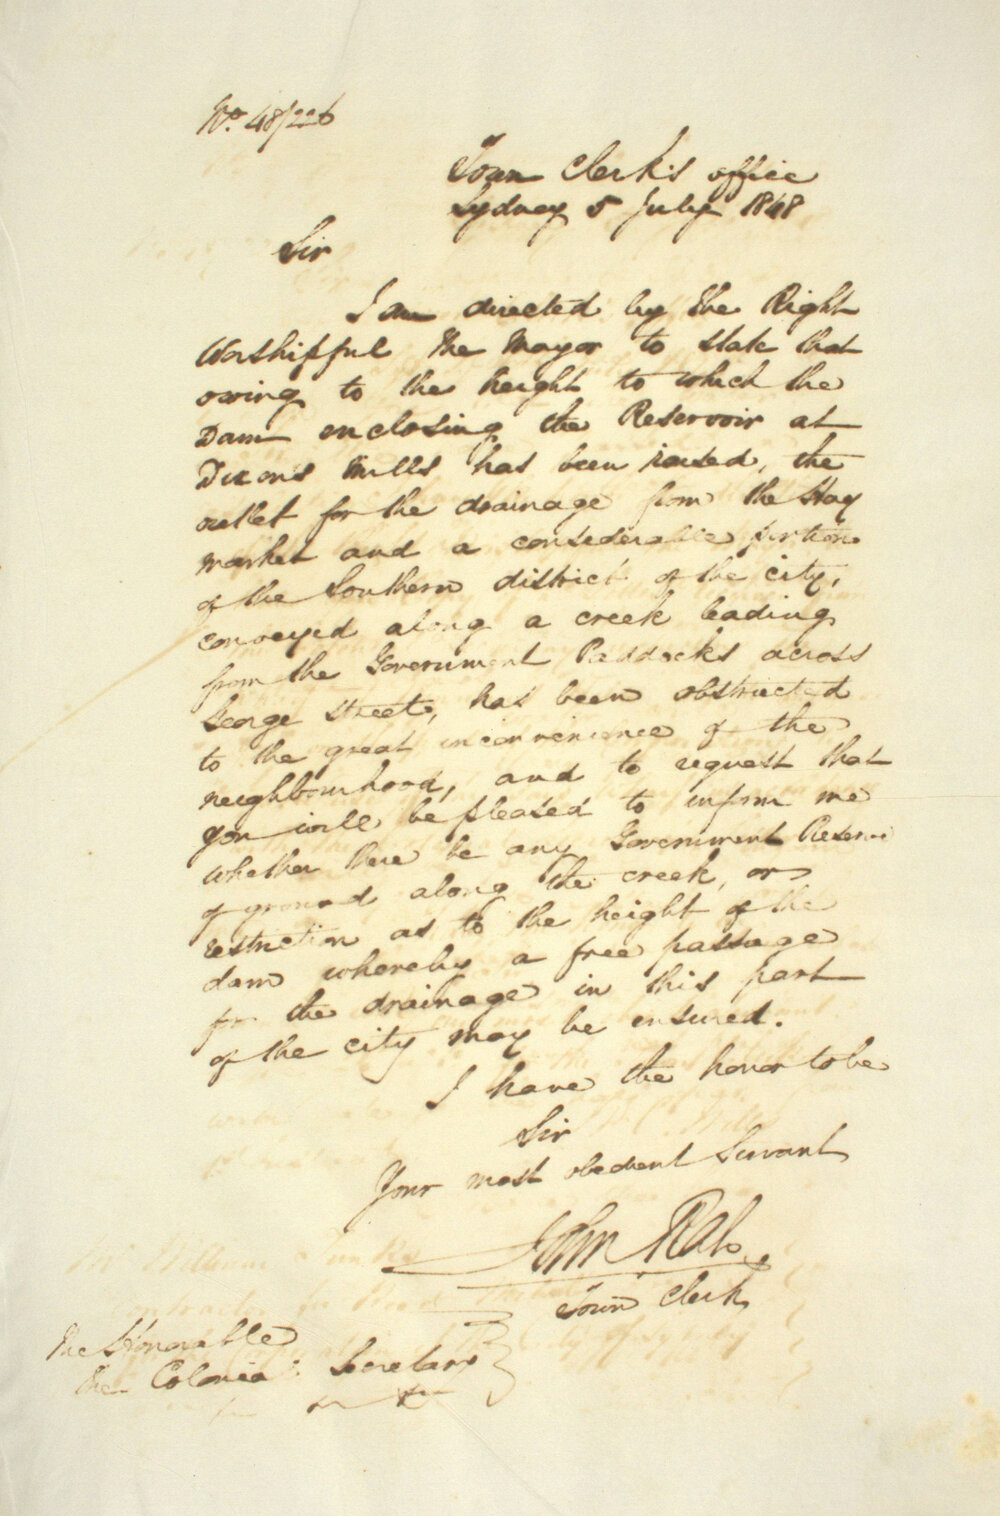 No. 48/226
Town Clerk's office
Sydney 5 July 1848
Sir
I am directed by the Right
Worshipful the Mayor to state that
owing to the height to which the
Dam enclosing the Reservoir at
Dixons Mills has been raised, the
outlet for the drainage from the Hay
market and a considerable portion
of the Southern district of the city,
conveyed along a creek leading
from the Government Paddocks across
George Street, has been obstructed
to the great inconvenience of the
neighbourhood, and to request that
you will be pleased to inform me
whether there be any Government Reserve
of ground along the creek, or
restriction as to the height of the
dam whereby a free passage
for the drainage in this part
of the city may be ensured.
I have the honor to be
Sir
Your most obedient Servant
John Rae
Town Clerk
The Honorable
the Colonial Secretary